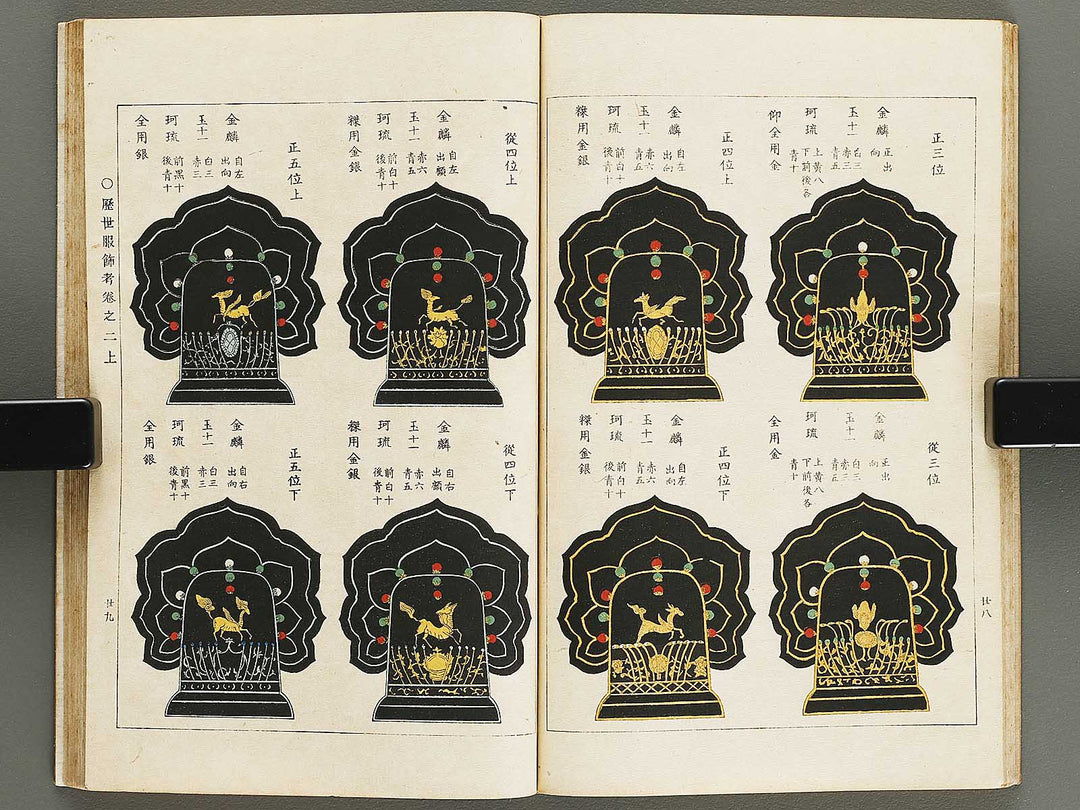 正三位
金麟 正出向
玉十一 白三赤三青五
珂琉 上黄八下前後各青十
仰全用金
正四位上
金麟 自左出向
玉十一 赤六青五
珂琉 前白十後青十
糅用金銀
從三位
金麟 正出向
玉十一 白三赤三青五
珂琉 上黄八下前後各青十
全用金
正四位下
金麟 自左出向
玉十一 赤六青五
珂琉 前白十後青十
糅用金銀
廿八
從四位上
金麟 自左出顧
玉十一 赤六青五
珂琉 前白十後青十
糅用金銀
正五位上
金麟 自左出向
玉十一 白三赤三
珂琉 前黒十後青十
全用銀
從四位下
金麟 自右出顧
玉十一 赤六青五
珂琉 前白十後青十
糅用金銀
正五位下
金麟 自右出向
玉十一 白三赤三
珂琉 前黒十後青十
全用銀
○歷世服飾考卷之二上
廿九